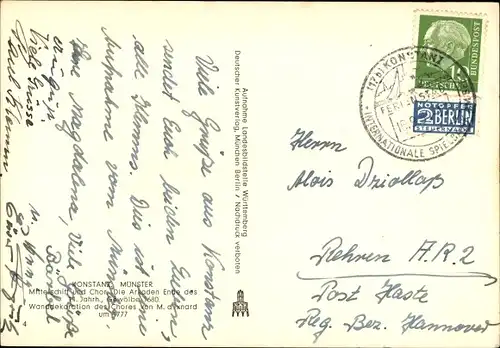 Viele Grüße aus Konstanz
sendet Euch beiden Guten,
alle Klemms. Dies ist eine
Aufnahme vom Münster.
Eure Magdalena, Viele Grüße
Bärbel
Viele Grüße
u.
Aufnahme Landesbildstelle Württemberg
Deutscher Kunstverlag, München Berlin / Nachdruck verboten
KONSTANZ MÜNSTER
Mittelschiff und Chor. Die Arkaden Ende des
Jahrh., Gewölbe 1680.
Wanddekoration des Chores von M. d'Ixnard
um 1777
(17b) KONSTANZ
INTERNATIONALE
DEUTSCHE BUNDESPOST
NOTOPFER
2 BERLIN
STEUERMARKE
Herrn
Alois Dziollaß
Rehren A.R. 2
Post Haste
Reg. Bez. Hannover